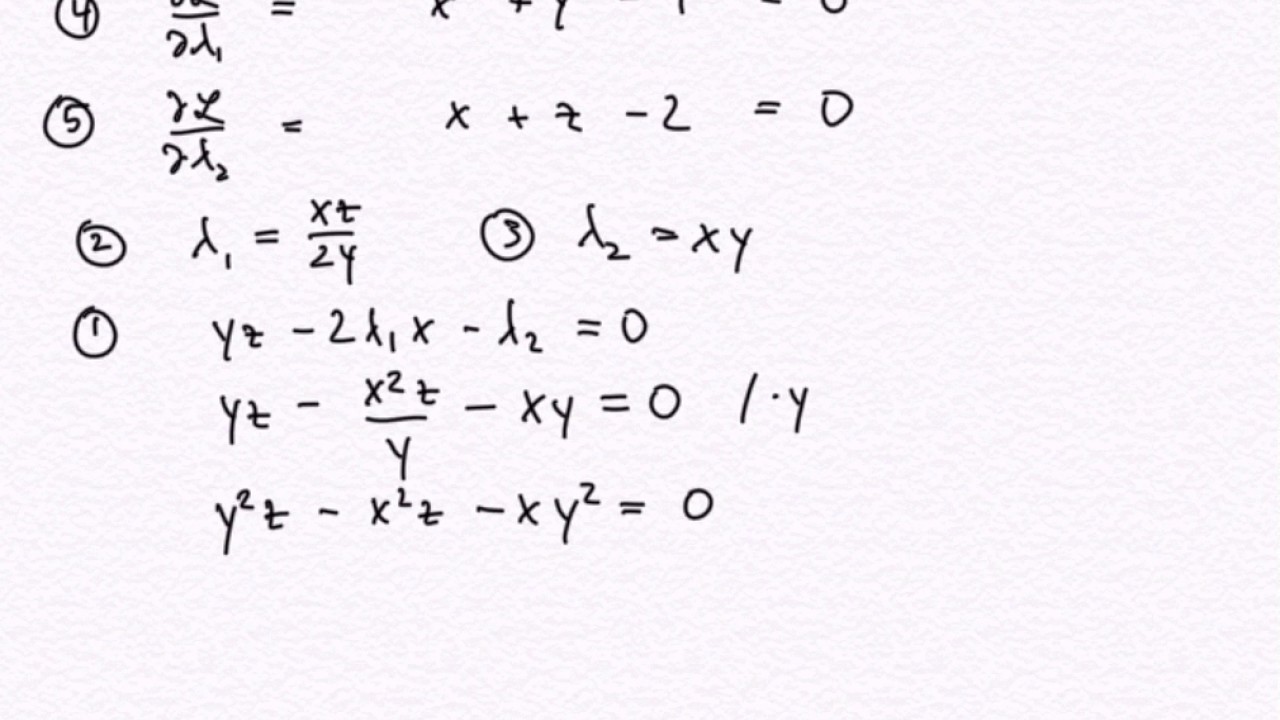 ④ ∂ℒ/∂λ₁ = x + y - 1 = 0
⑤ ∂ℒ/∂λ₂ = x + z - 2 = 0
② λ₁ = xz/2y ③ λ₂ = xy
① yz - 2λ₁x - λ₂ = 0
yz - x²z/y - xy = 0 / · y
y²z - x²z - xy² = 0